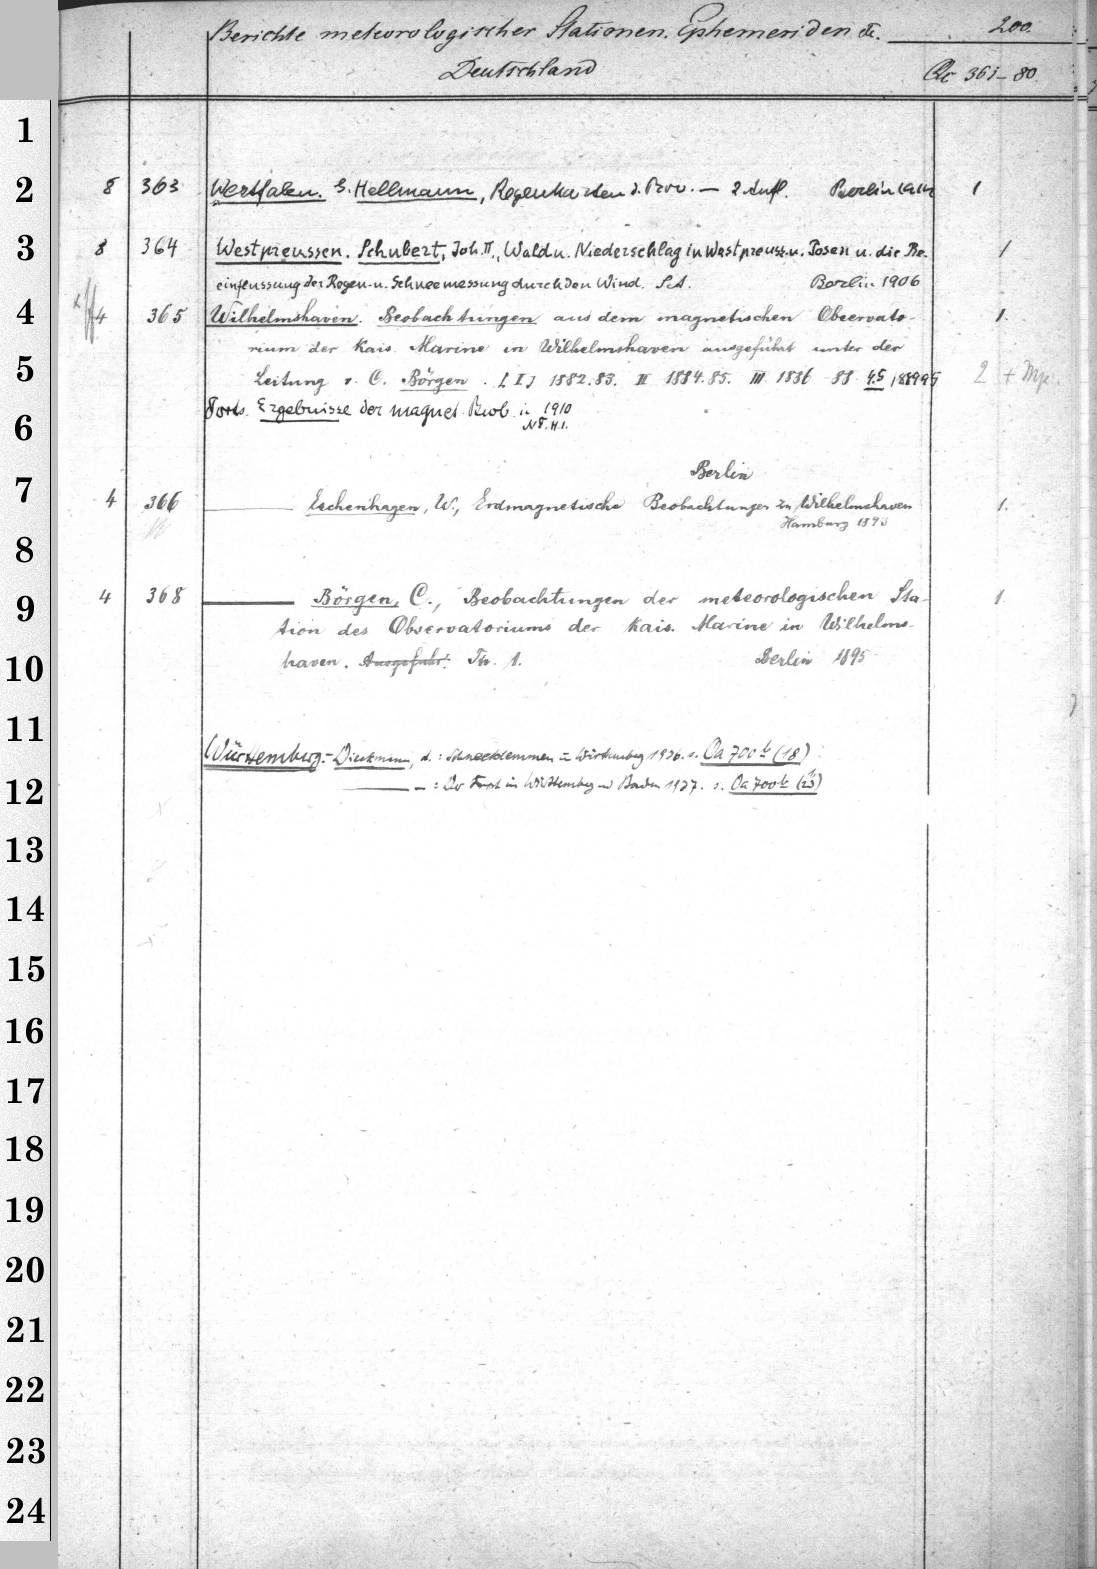 Berichte meteorologischer Stationen. Ephemeriden etc. 200.
Deutschland Qc 361–80.
1
2 8 363 Westfalen. G. Hellmann, Regenkarten d. Prov. — 2 Aufl. Berlin 1914 1
3 8 364 Westpreussen. Schubert, Joh. Wald u. Niederschlag in Westpreuss. u. Posen u. die Be- 1
einflussung der Regen- u. Schneemessung durch den Wind. Berlin 1906
4 4 365 Wilhelmshaven. Beobachtungen aus dem magnetischen Observato- 1.
rium der Kais. Marine in Wilhelmshaven ausgeführt unter der
5 Leitung v. C. Börgen. I 1882.83. II 1884.85. III 1886–88 4.5 1889 95 2 +
Forts. Ergebnisse der magnet. Beob. in 1910
6
Berlin
7 4 366 — Eschenhagen, W., Erdmagnetische Beobachtungen zu Wilhelmshaven 1.
Hamburg 1893
8
9 4 368 — Börgen, C., Beobachtungen der meteorologischen Sta- 1.
tion des Observatoriums der Kais. Marine in Wilhelms-
10 haven. Ausgeführt. Th. 1. Berlin 1895
11
Württemberg.- Dieckmann, A.: Schneeklemmen in Württemberg 1936. s. Oa 700 k (18)
12 — – : Der Frost in Württemberg und Baden 1937. s. Oa 700 k (23)
13
14
15
16
17
18
19
20
21
22
23
24